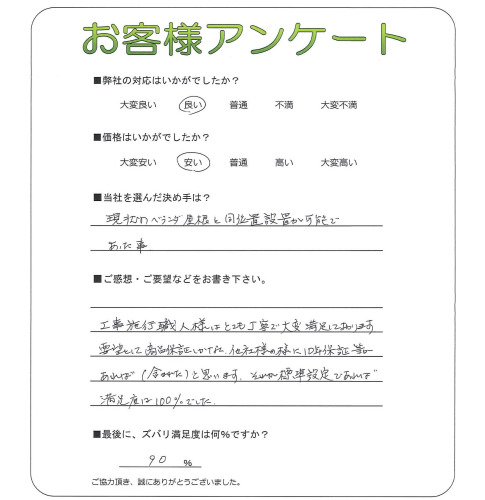 お客様アンケート
■弊社の対応はいかがでしたか？
大変良い 良い 普通 不満 大変不満
■価格はいかがでしたか？
大変安い 安い 普通 高い 大変高い
■当社を選んだ決め手は？
現状のベランダ屋根と同位置設置が可能で
あった事
■ご感想・ご要望などをお書き下さい。
工事施行職人様はとても丁寧で大変満足しております
要望として商品保証しかなく、他社様の様に10年保証等が
あれば（含めた）と思います。それが標準設定であれば
満足度は100%でした
■最後に、ズバリ満足度は何％ですか？
90 ％
ご協力頂き、誠にありがとうございました。